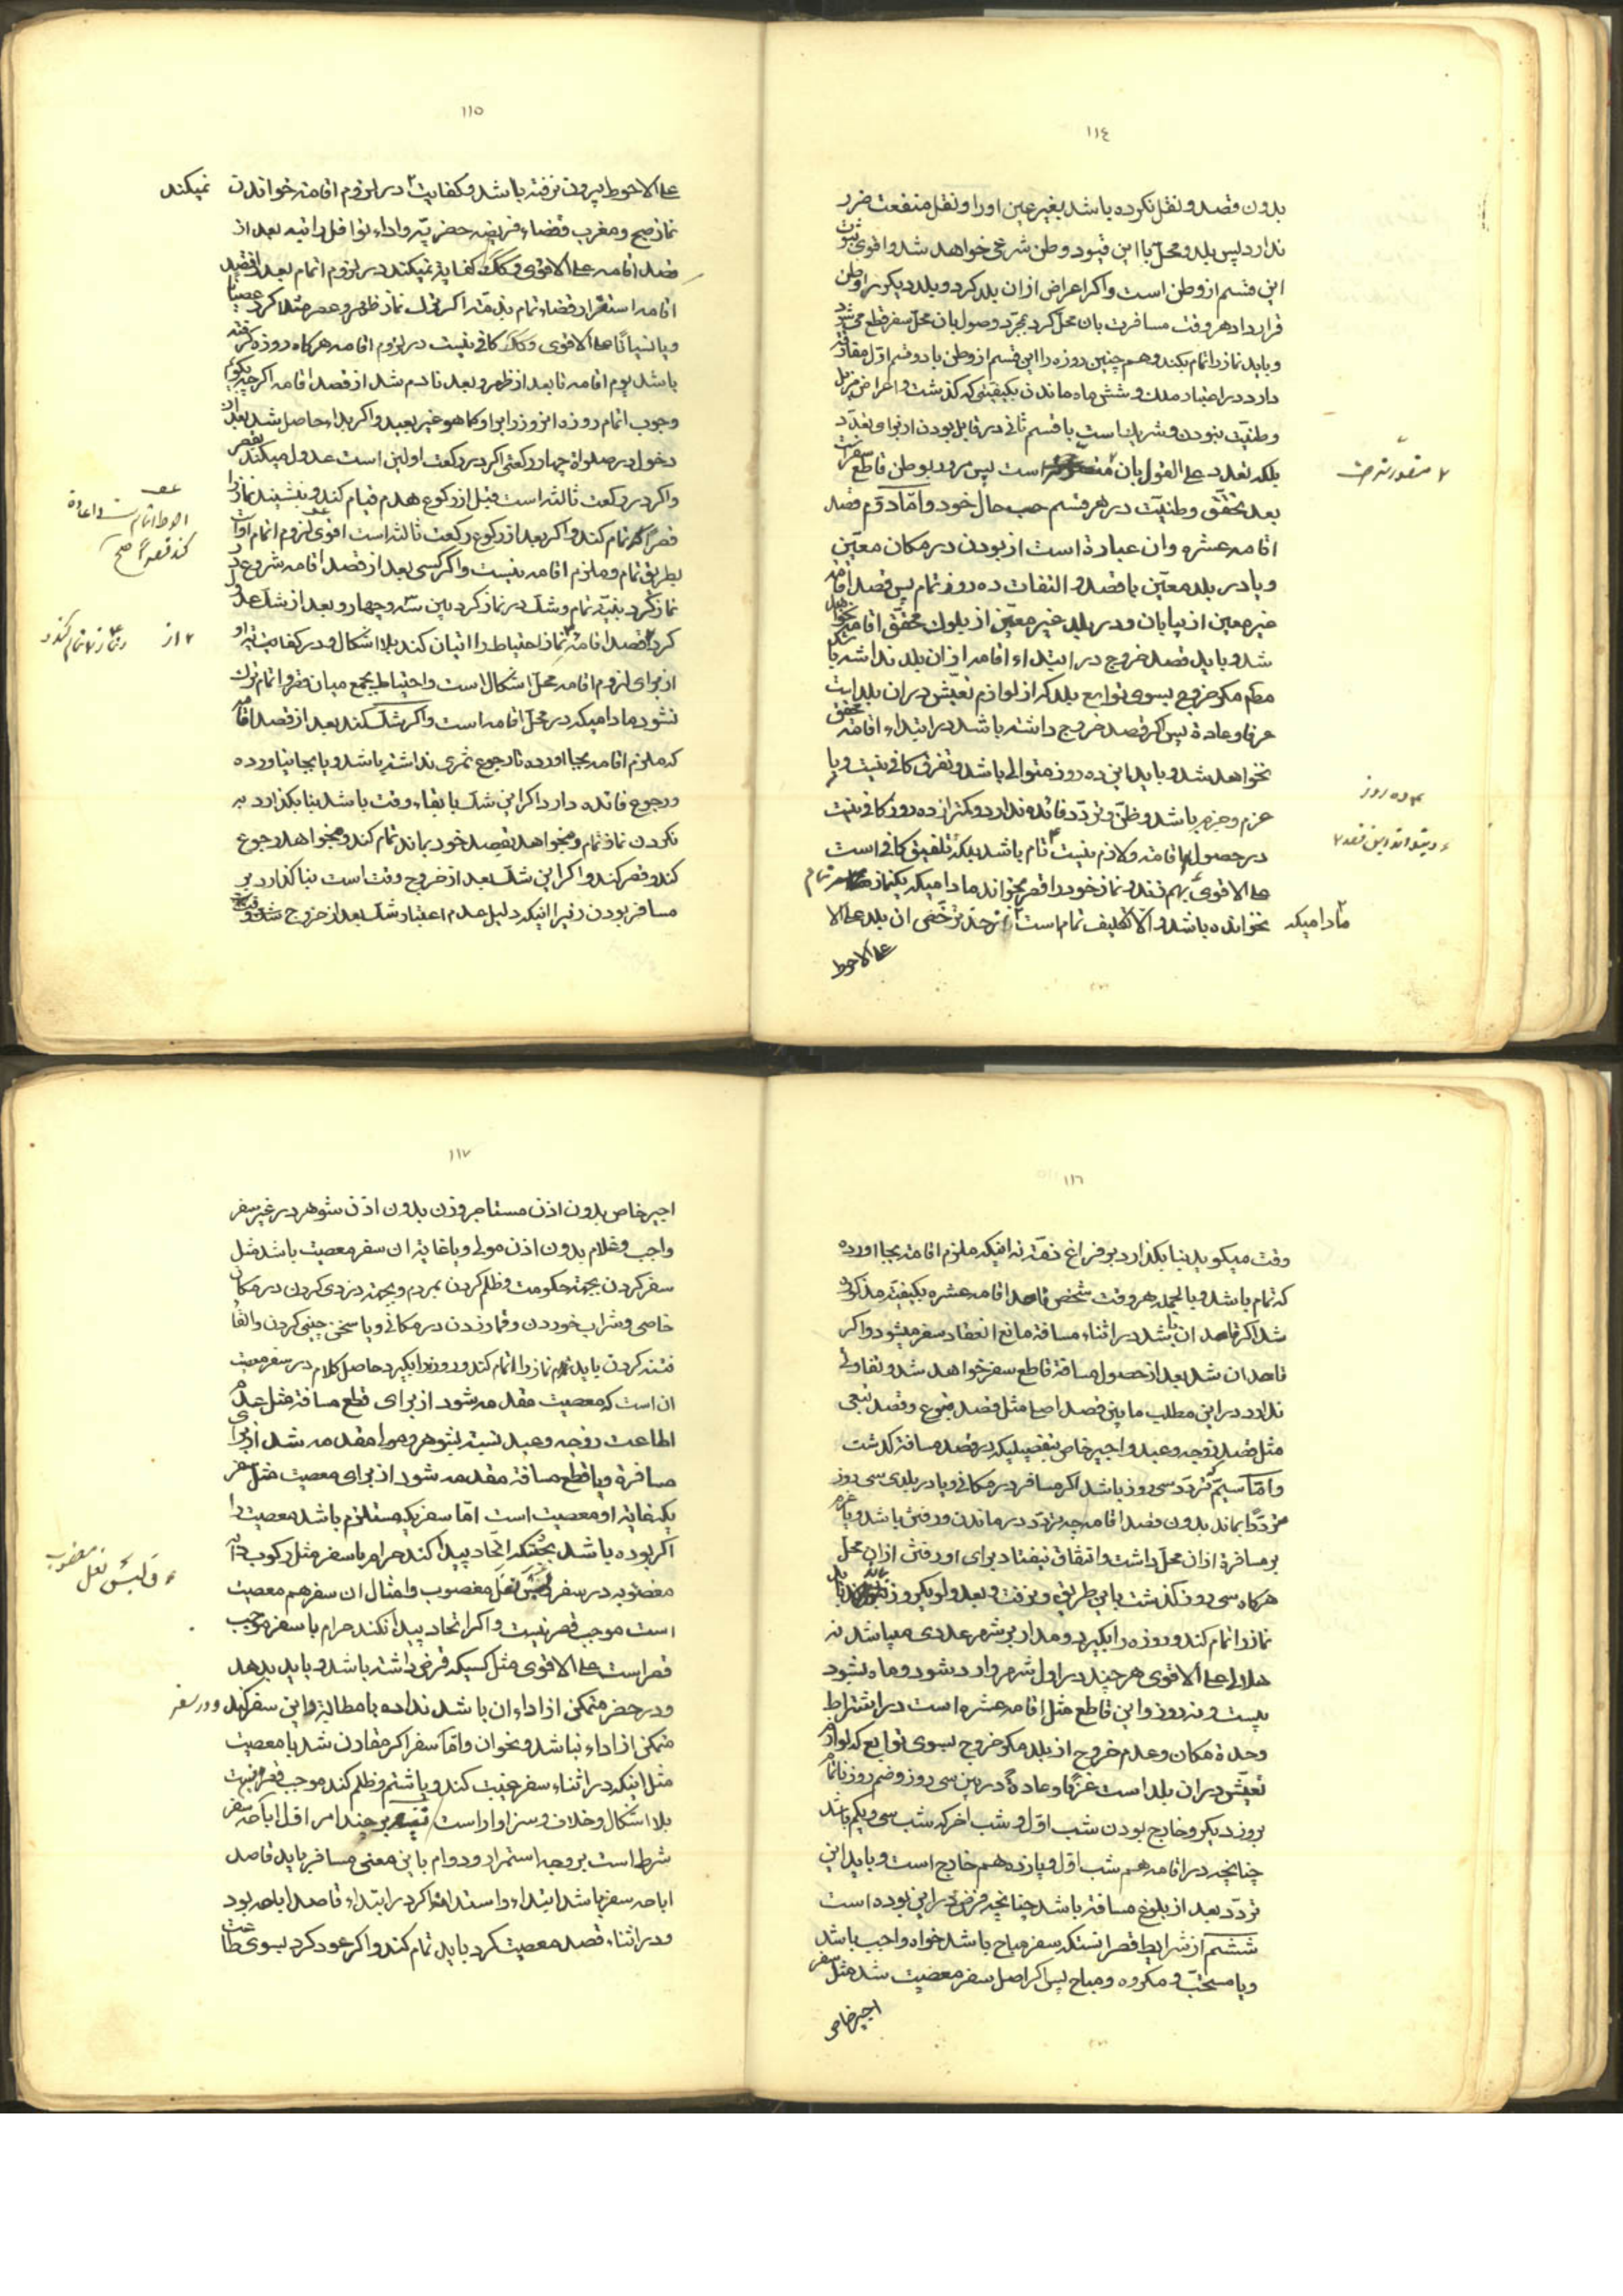 ١١٤
بدون قصد و نقل نکرده باشد بغیر عین او را و نقل منفعت ضرر
ندارد پس بلد و محل با این قیود وطن شرعی خواهد شد و اقوی ثبوت
این قسم از وطن است و اکر اعراض از ان بلد کرد و بلد دیکر را وطن
قرار داد هر وقت مسافرت بان محل کرد بمجرد وصول بان محل سفر قطع می شود
و باید نماز را تمام بکند و هم چنین روزه را این قسم از وطن با دو قسم اول
دارد در اعتبار ملک و شش ماه ماندن بکیفیتی که کذشت و اعراض مزیل
وطنیت نبودن و شریک است با قسم ثانی در قابل بودن از برای تعدد
بلکه تعدد علی القول بان است پس مرور بوطن قاطع سفر است
بعد تحقق وطنیت در هر قسم حسب حال خود و اما دوم قصد
اقامه عشره و ان عبارة است از بودن در مکان معین
و یا در بلد معین با قصد و التفات ده روز تمام پس قصد اقامه
غیر معین از بیابان و در بلد غیر معین از بلوک محقق اقامه نخواهد
شد و باید قصد خروج در ابتداء اقامه از ان بلد نداشته باشد
مکر خروج بسوی توابع بلد که از لوازم تعیش در ان بلد است
عرفا و عادة پس اکر قصد خروج داشته باشد در ابتداء اقامه محقق
نخواهد شد و باید این ده روز متوالی باشد و تفرق کافی نیست و با
عزم و جزم باشد و ظن و تردد فائده ندارد و کمتر از ده روز کافی نیست
در حصول اقامه و لازم نیست تام باشد بلکه تلفیق کافی است
علی الاقوی بهم زند و نماز خود را قصر بخواند مادامیکه یکنماز تمام
مادامیکه نخوانده باشد و الا تکلیف تمام است از حد ترخص ان بلد علی الا
علی الاحوط
ده روز
١١٥
علی الاحوط بیرون نرفته باشد و کفایت در لزوم اقامه خواندن نمیکند
نماز صبح و مغرب قضاء فریضه حضریه و اداء نوافل راتبه بعد از
قصد اقامه علی الاقوی و کک کفایة نمیکند در لزوم اتمام بعد از قصد
اقامه استقرار قضاء تمام بذمه اکر ترک نماز ظهر و عصر مثلا کرد عصیانا
و یا نسیانا علی الاقوی و کک کافی نیست در لزوم اقامه هرکاه روزه کرفته
باشد یوم اقامه تا بعد از ظهر و بعد نادم شد از قصد اقامه اکر چه
وجوب اتمام روزه انروز را بر او کما هو غیر بعید و اکر بداء حاصل شد بعد از
دخول در صلواة چهار رکعتی اکر در رکعت اولین است عدول میکند بقصر
و اکر در رکعت ثالثه است قبل از رکوع هدم قیام کند و بنشیند نماز را
قصرا تمام کند و اکر بعد از رکوع رکعت ثالثه است اقوی لزوم اتمام
بطریق تمام و ملزم اقامه نیست و اکر کسی بعد از قصد اقامه شروع در
نماز کرد بنیة تمام و شک در نماز کرد بین سه و چهار و بعد از شک عدول
کرد قصد اقامه نماز احتیاط را اتیان کند بلا اشکال و در کفایت
از برای لزوم اقامه محل اشکال است و احتیاط بجمع میان قصر و اتمام ترک
نشود مادامیکه در محل اقامه است و اکر شک کند بعد از قصد اقامه
که ملزم اقامه بجا اورده تا رجوع ثمری نداشته باشد و یا بجا نیاورده
و رجوع فائده دارد اکر این شک با بقاء وقت باشد بنا بکذارد به
نکردن نماز تمام و میخواهد بقصد خود بماند تمام کند و میخواهد رجوع
کند و قصر کند و اکر این شک بعد از خروج وقت است بنا کذارد بر
مسافر بودن زیرا انیکه دلیل عدم اعتبار شک بعد از خروج
١١٦
وقت میکوید بنا بکذارد بر فراغ ذمه نه اینکه ملزم اقامه بجا اورده
که تمام باشد و بالجمله هر وقت شخص قاصد اقامه عشره بکیفیة مذکوره
شد اکر قاصد ان شد در اثناء مسافة مانع انعقاد سفر میشود و اکر
قاصد ان شد بعد از حصول مسافة قاطع سفر خواهد شد و تفاوتی
ندارد در این مطلب مابین قصد اصلی مثل قصد متبوع و قصد تبعی
مثل قصد زوجه و عبد و اجیر خاص بتفصیلیکه در قصد مسافة کذشت
و اما سیم تردد سی روز باشد اکر مسافر در مکانی و یا در بلدی سی روز
مرددا بماند بدون قصد اقامه چه تردد در ماندن و رفتن باشد و یا عزم
بر مسافرة از ان محل داشت و اتفاق نیفتاد برای او رفتن از ان محل
هرکاه سی روز کذشت باین طریق و نرفت و بعد ولو یکروز
نماز را تمام کند و روزه را بکیرد و مدار بر شهر عددی میباشد نه
هلالی علی الاقوی هر چند در اول شهر وارد شود و ماه بشود
بیست و نه روز و این قاطع مثل اقامه عشره است در اشتراط
وحدة مکان و عدم خروج از بلد مکر خروج بسوی توابع که لوازم
تعیش در ان بلد است عرفا و عادة در بین سی روز و ضم روز ناتمام
بروز دیکر و خارج بودن شب اول و شب اخر که شب سی و یکم باشد
چنانچه در اقامه هم شب اول و یازدهم خارج است و باید این
تردد بعد از بلوغ مسافة باشد چنانچه فرض در این بوده است
ششم از شرایط قصر انستکه سفر مباح باشد خواه واجب باشد
و یا مستحب و مکروه و مباح پس اکر اصل سفر معصیت شد مثل سفر
اجیر خاص
١١٧
اجیر خاص بدون اذن مستاجر و زن بدون اذن شوهر در غیر سفر
واجب و غلام بدون اذن مولی و یا غایة ان سفر معصیت باشد مثل
سفر کردن بجهة حکومت و ظلم کردن بمردم و بجهة دزدی کردن در مکان
خاصی و شراب خوردن و قمار زدن در مکانی و یا سخن چینی کردن و القاء
فتنه کردن باید تمام نماز را اتمام کند و روزه را بکیرد حاصل کلام در سفر معصیت
ان است که معصیت مقدمه شود از برای قطع مسافة مثل عدم
اطاعت زوجه و عبد نسبت بشوهر و مولا مقدمه شد از برای
مسافرة و یا قطع مسافة مقدمه شود از برای معصیت مثل سفر
یکه غایة او معصیت است اما سفریکه مستلزم باشد معصیت را
اکر بوده باشد بحیثیکه اتحاد پیدا کند حرام با سفر مثل رکوب دابه
مغصوبه در سفر نعل مغصوب و امثال ان سفر هم معصیت
است موجب قصر نیست و اکر اتحاد پیدا نکند حرام با سفر موجب
قصر است علی الاقوی مثل کسیکه قرض داشته باشد و باید بدهد
و در حضر متمکن از اداء ان باشد نداده با مطالبة و این سفر کند و در سفر
متمکن از اداء نباشد و نحو ان و اما سفر اکر مقارن شد با معصیت
مثل اینکه در اثناء سفر غیبت کند و یا شتم و ظلم کند موجب قصر نیست
بلا اشکال و خلاف و سزاوار است تنبیه بر چند امر اول اباحه سفر
شرط است بر وجه استمرار و دوام باین معنی مسافر باید قاصد
اباحه سفر باشد ابتداء و استدامة اکر در ابتداء قاصد اباحه بود
و در اثناء قصد معصیت کرد باید تمام کند و اکر عود کرد بسوی طاعت
و لبس نعل مغصوب